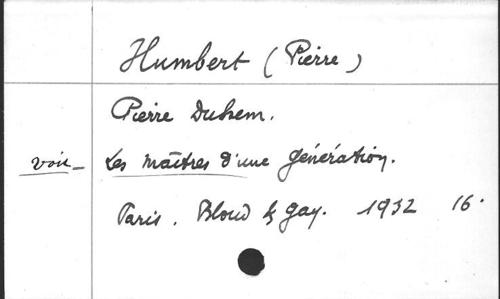 Humbert (Pierre)
Pierre Duhem.
voir – Les maîtres d'une génération.
Paris. Bloud & Gay. 1932 16°